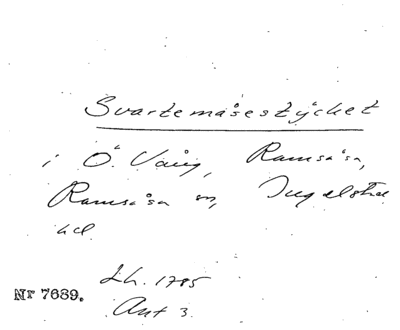 Svartemåsestycket
i Ö. Vång, Ramsåsa,
Ramsåsa sn, Ingelstads
hd
Lh. 1785
Akt 3.
Nr 7689.